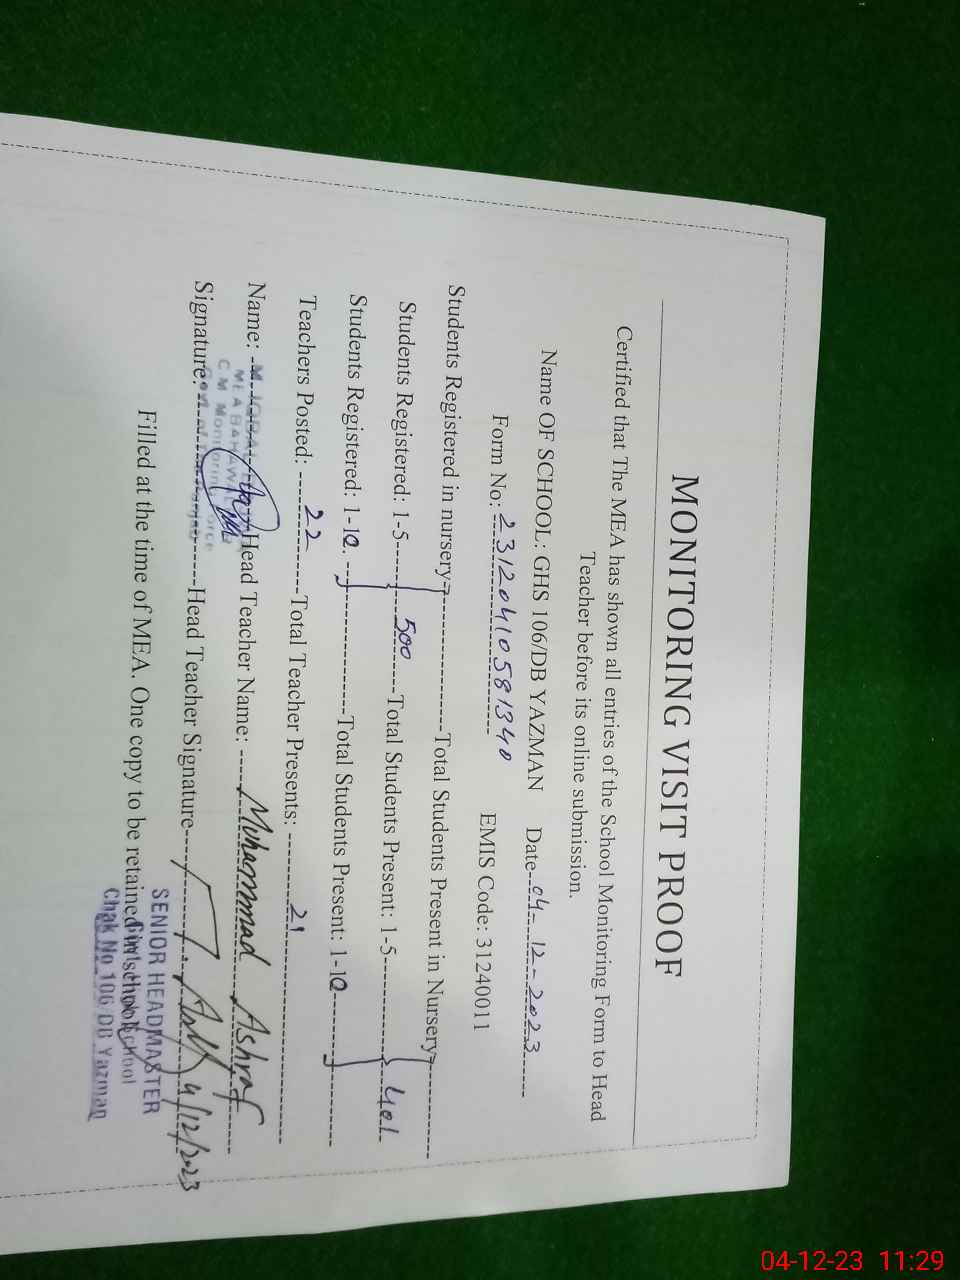 MONITORING VISIT PROOF
Certified that The MEA has shown all entries of the School Monitoring Form to Head
Teacher before its online submission.
Name OF SCHOOL: GHS 106/DB YAZMAN Date--04-12-2023------
Form No: 23120410581340 EMIS Code: 31240011
Students Registered in nursery----------------Total Students Present in Nursery-----------
Students Registered: 1-5------500------Total Students Present: 1-5----------401
Students Registered: 1-10.----------------Total Students Present: 1-10--------------
Teachers Posted: -----22------Total Teacher Presents: ---------21----------------
Name: -M. IQBAL------Head Teacher Name: -----Muhammad Ashraf-----
MEA
C M Monitoring Force
Signature:----------------Head Teacher Signature---------- 4/12/2023
Filled at the time of MEA. One copy to be retained in school.
SENIOR HEADMASTER
School
Chak No 106/DB Yazman
04-12-23 11:29